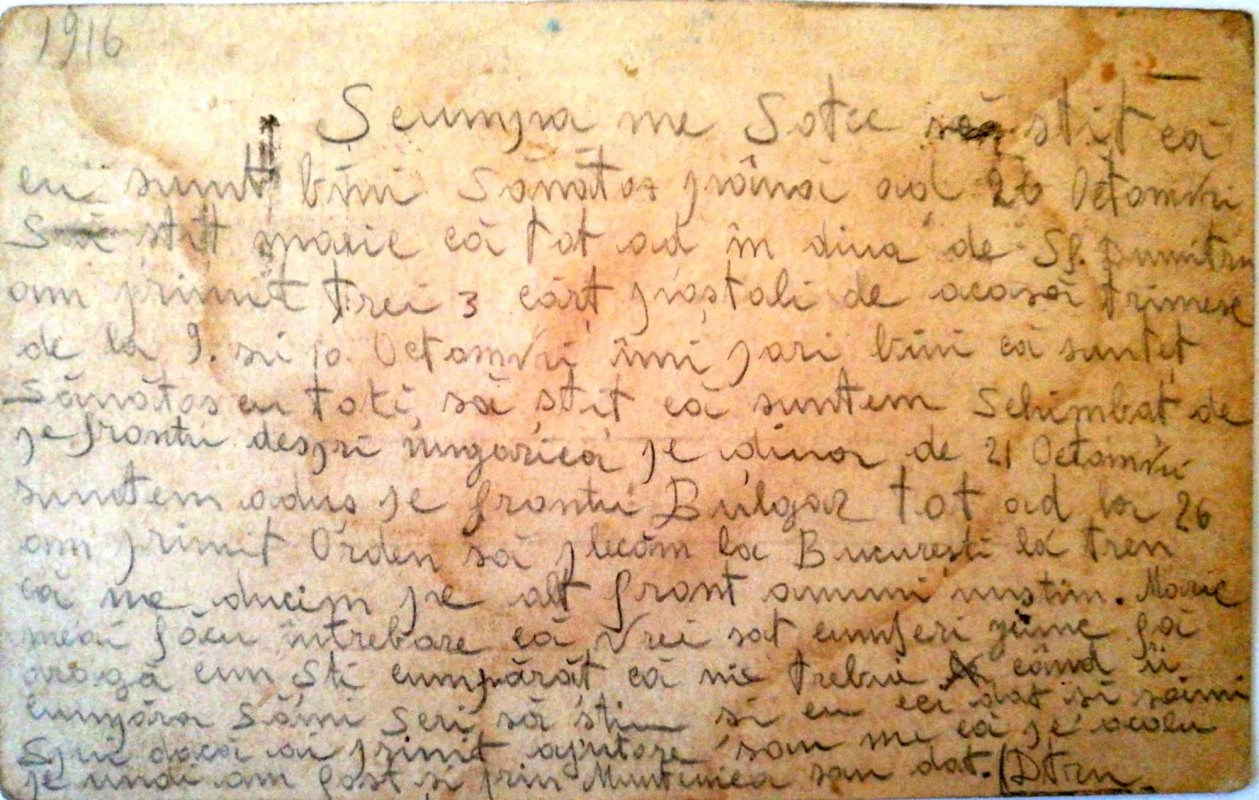 1916
Scumpa me Sotie să stit că
eu sunt bini Sănătos până ad 26 Octomvri
Să stit marie că tot ad în diua de Sf. Dumitru
am primit trei 3 cărt poștali de acasă trimese
de la 9. si 10 Octomvri îmi pari bini că suntet
Sănătos cu toti, să stit că suntem Schimbat de
pe frontu despri ungariea pe diua de 21 Octomvri
suntem aduș pe frontu Bulgar tot ad la 26
am primit Orden să plecăm la Bucuresti la tren
că ne ducim pe alt front anumi nustim. Marie
meai făcu întrebare că vrei sat cumperi fă
aragă cum Sti cumpărăt că nie trebuie când îi
cumpăra Sămi Seri să stiu si cu ci dat și sămi
Spui dacă ai primit ajutore sau me că pe acolu
pe undi am fost și prin Munteniea sau dat.